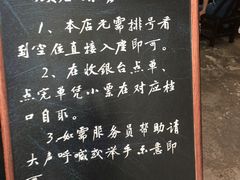 1、本店无需排号看
到空位直接入座即可。
2、在收银台点单、
点完单凭小票在对应档
口自取。
3、如需服务员帮助请
大声呼喊或举手示意即
可